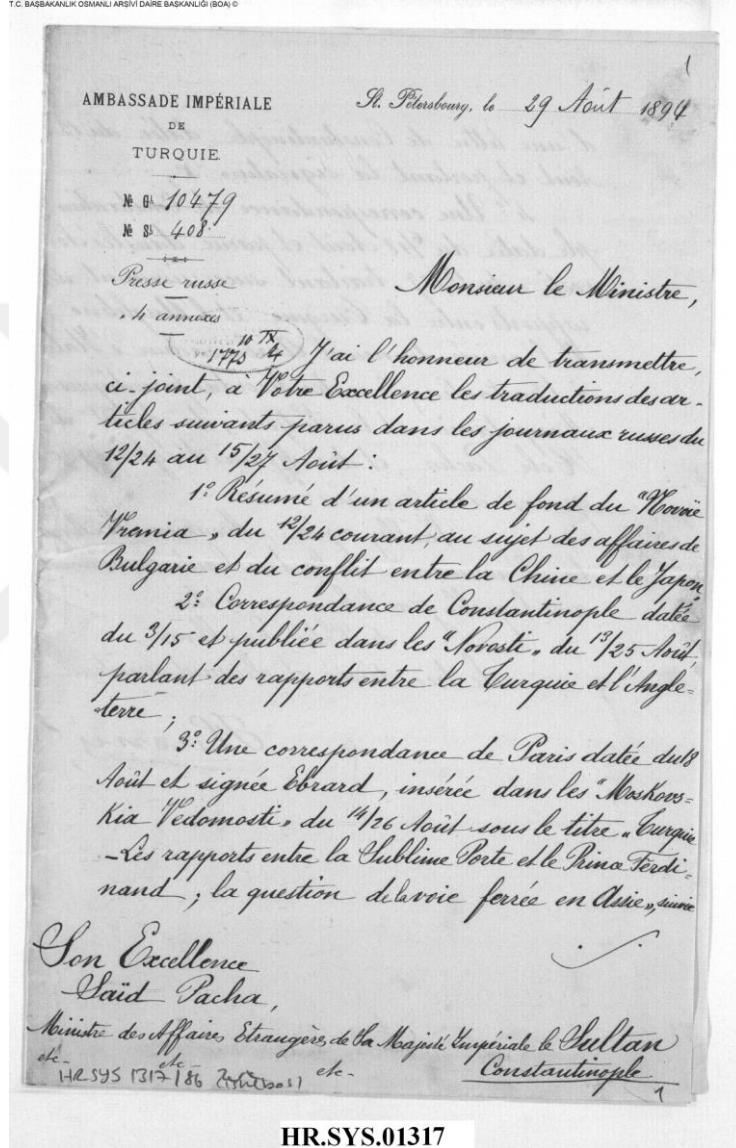 T.C. BAŞBAKANLIK OSMANLI ARŞİVİ DAİRE BAŞKANLIĞI (BOA) ©
1
AMBASSADE IMPÉRIALE
DE
TURQUIE.
St. Pétersbourg, le 29 Août 1894
№ Gl 10479
№ Sl 408
Presse russe
4 annexes
Monsieur le Ministre,
1773 10 IX 4
J'ai l'honneur de transmettre,
ci-joint, à Votre Excellence les traductions des ar-
ticles suivants parus dans les journaux russes du
12/24 au 15/27 Août :
1º Résumé d'un article de fond du "Novoïe
Vremia" du 12/24 courant, au sujet des affaires de
Bulgarie et du conflit entre la Chine et le Japon;
2º Correspondance de Constantinople datée
du 3/15 et publiée dans les "Novosti" du 13/25 Août,
parlant des rapports entre la Turquie et l'Angle-
terre;
3º Une correspondance de Paris datée du 18
Août et signée Ebrard, insérée dans les "Moskovs=
Kia Vedomosti" du 14/26 Août sous le titre "Turquie
-Les rapports entre la Sublime Porte et le Prince Ferdi-
nand; la question de la voie ferrée en Asie", suivie
./.
Son Excellence
Saïd Pacha,
Ministre des Affaires Etrangères de Sa Majesté Impériale le Sultan
etc- etc- etc-
Constantinople
HR SYS 1317/86
1
HR.SYS.01317